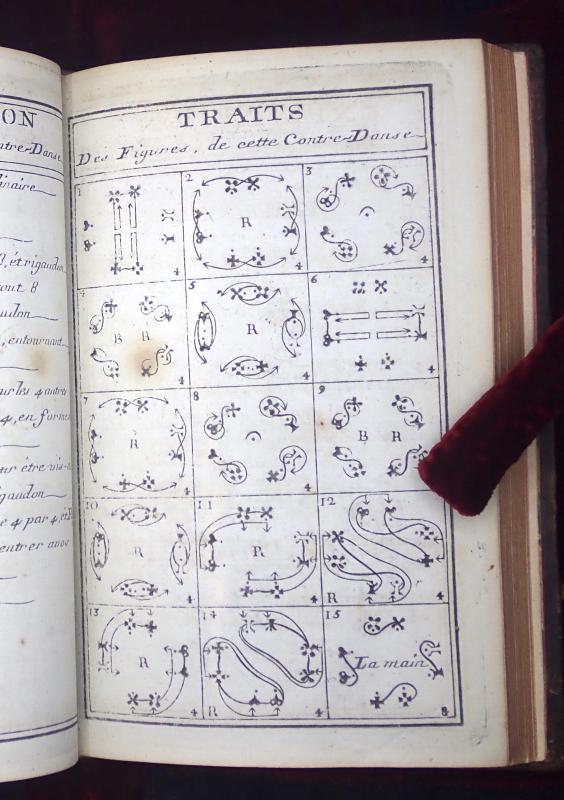 ON
ntre-Danse
inaire
3, étrigaudon
out 8
udon
, entournant
ur les 4 autres
4, en formen
ur être vis-
igaudon
e 4 par 4, et
entrer avec
TRAITS
Des Figures, de cette Contre-Danse
1 4
2 R 4
3 4
4 B R 4
5 R 4
6 4
7 R 4
8 4
9 B R 4
10 R 4
11 R 4
12 R 4
13 R 4
14 R 4
15 La main 8